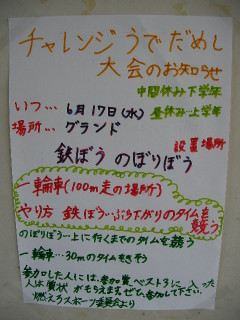 チャレンジうでだめし
大会のお知らせ
中間休み下学年
いつ… 6月17日(水) 昼休み-上学年
場所… グランド
設置場所
鉄ぼう のぼりぼう
一輪車(100m走の場所)
やり方 鉄ぼう…ぶら下がりのタイムを競う
のぼりぼう…上に行くまでのタイムを競う
一輪車…30mのタイムをきそう
参加した人には、参加賞 ベスト3に入った
人は賞状 がもらえます。ぜひ、参加して下さい。
燃えろスポーツ委員会より